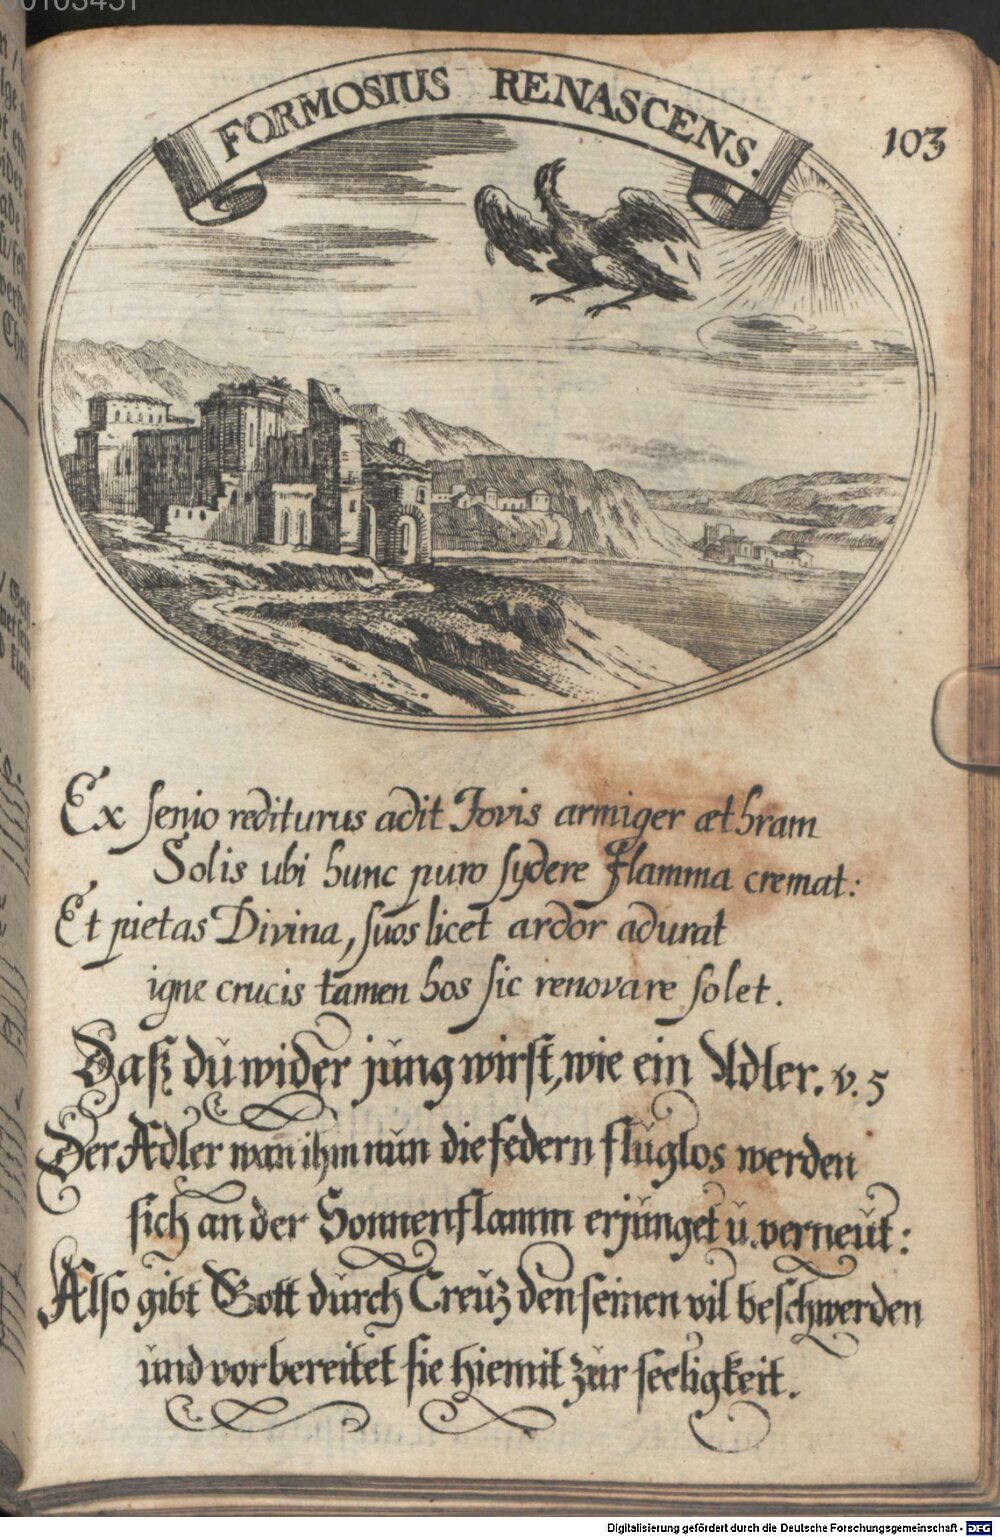 FORMOSIUS RENASCENS.
103
Ex senio rediturus adit Jovis armiger æthram
Solis ubi hunc puro sydere Flamma cremat:
Et pietas Divina, suos licet ardor adurat
igne crucis tamen hos sic renovare solet.
Daß du wider jung wirst, wie ein Adler. v. 5
Der Adler wan ihm nun die federn fluglos werden
sich an der Sonnenflamm erjunget u. verneut:
Also gibt Gott durch Creuz den seinen vil beschwerden
und vorbereitet sie hiemit zur seeligkeit.
Digitalisierung gefördert durch die Deutsche Forschungsgemeinschaft - DFG